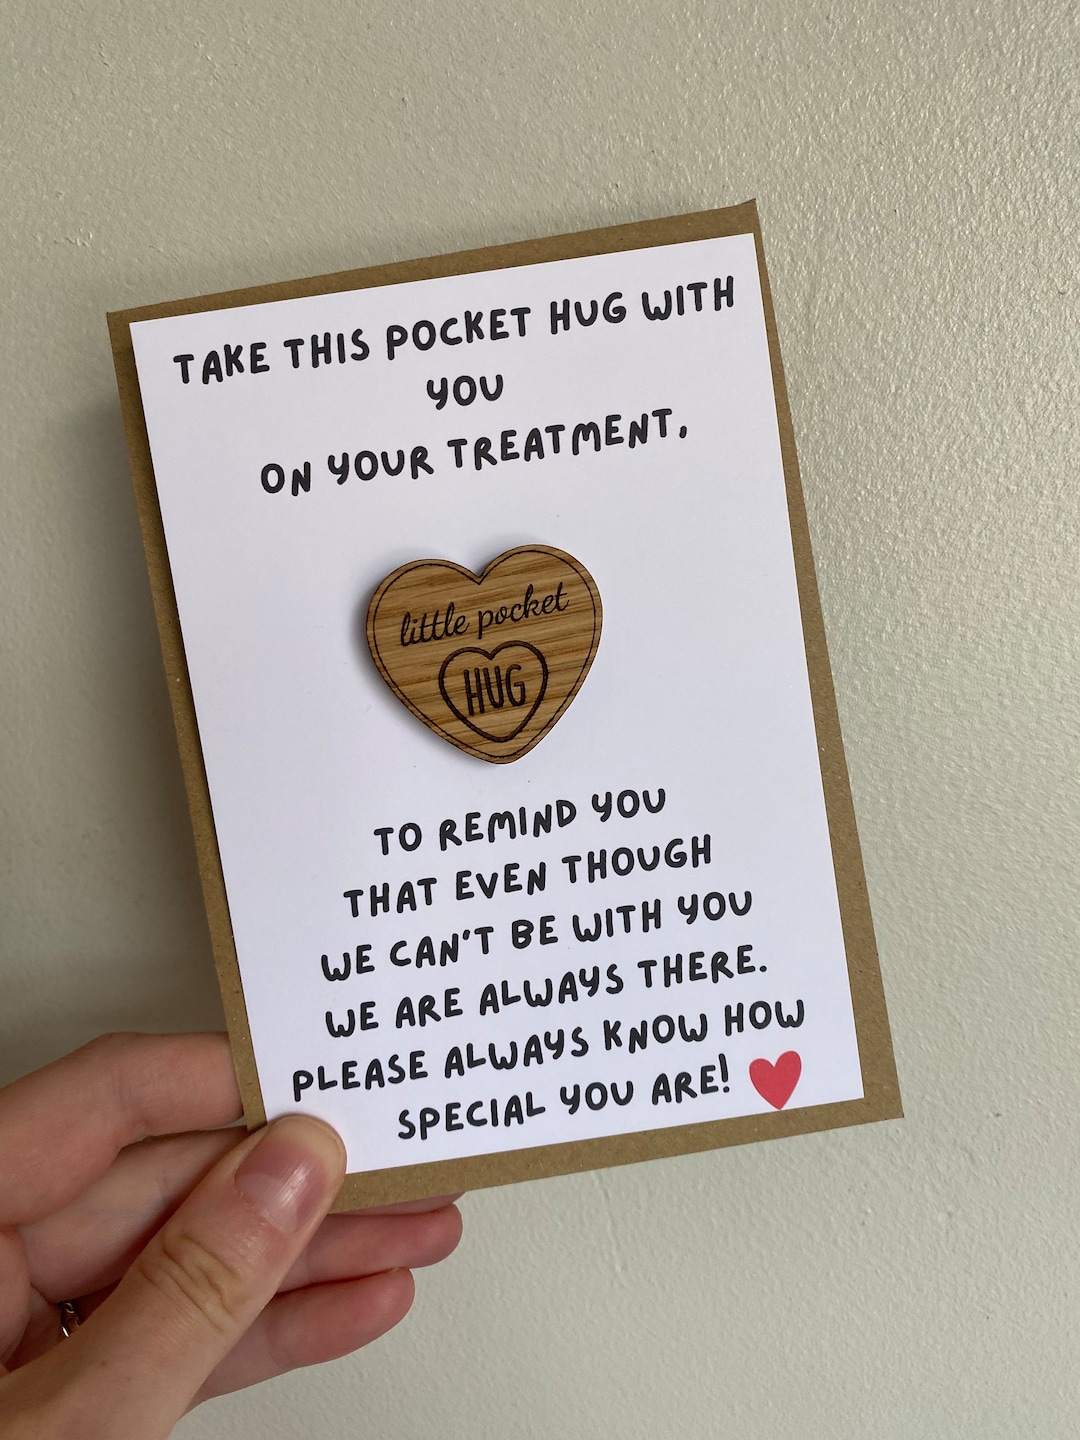 TAKE THIS POCKET HUG WITH
YOU
ON YOUR TREATMENT,
little pocket
HUG
TO REMIND YOU
THAT EVEN THOUGH
WE CAN'T BE WITH YOU
WE ARE ALWAYS THERE.
PLEASE ALWAYS KNOW HOW
SPECIAL YOU ARE!